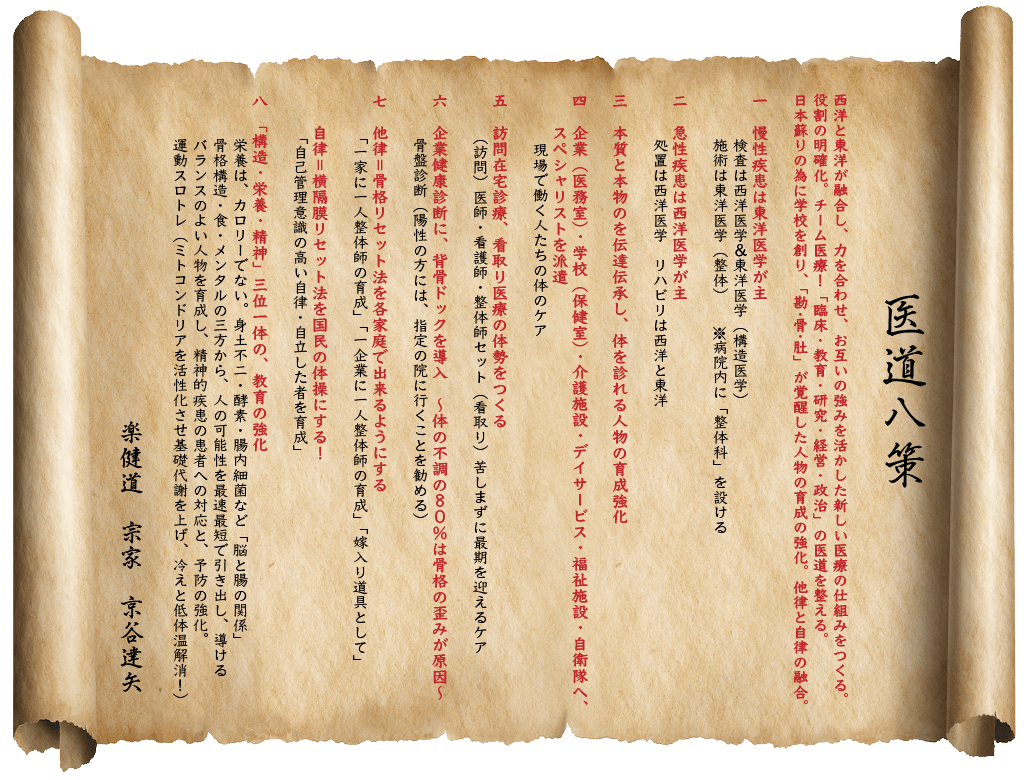 医道八策
西洋と東洋が融合し、力を合わせ、お互いの強みを活かした新しい医療の仕組みをつくる。
役割の明確化。チーム医療！「臨床・教育・研究・経営・政治」の医道を整える。
日本蘇りの為に学校を創り、「勘・骨・肚」が覚醒した人物の育成の強化。他律と自律の融合。
一 慢性疾患は東洋医学が主
検査は西洋医学＆東洋医学（構造医学）
施術は東洋医学（整体） ※病院内に「整体科」を設ける
二 急性疾患は西洋医学が主
処置は西洋医学 リハビリは西洋と東洋
三 本質と本物のを伝達伝承し、体を診れる人物の育成強化
四 企業（医務室）・学校（保健室）・介護施設・デイサービス・福祉施設・自衛隊へ、
スペシャリストを派遣
現場で働く人たちの体のケア
五 訪問在宅診療、看取り医療の体勢をつくる
（訪問）医師・看護師・整体師セット（看取り）苦しまずに最期を迎えるケア
六 企業健康診断に、背骨ドックを導入 〜体の不調の８０％は骨格の歪みが原因〜
骨盤診断（陽性の方には、指定の院に行くことを勧める）
七 他律＝骨格リセット法を各家庭で出来るようにする
「一家に一人整体師の育成」「一企業に一人整体師の育成」「嫁入り道具として」
自律＝横隔膜リセット法を国民の体操にする！
「自己管理意識の高い自律・自立した者を育成」
八 「構造・栄養・精神」三位一体の、教育の強化
栄養は、カロリーでない。身土不二・酵素・腸内細菌など「脳と腸の関係」
骨格構造・食・メンタルの三方から、人の可能性を最速最短で引き出し、導ける
バランスのよい人物を育成し、精神的疾患の患者への対応と、予防の強化。
運動スロトレ（ミトコンドリアを活性化させ基礎代謝を上げ、冷えと低体温解消！）
楽健道 宗家 京谷達矢